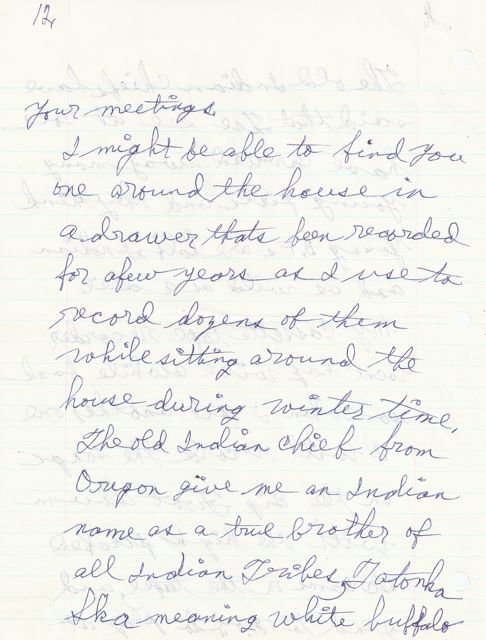 12,
Your meetings.
I might be able to find you
one around the house in
a drawer thats been recorded
for afew years as I use to
record dozens of them
while sitting around the
house during winter time.
The old Indian chief from
Oregon give me an Indian
name as a true brother of
all Indian Tribes, Tatonka
Ska meaning white buffalo